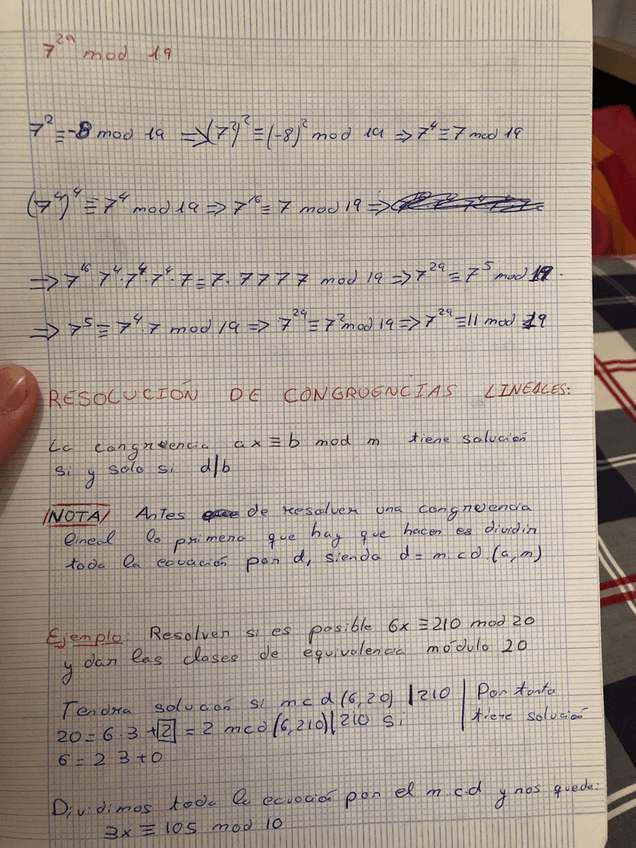 7²⁹ mod 19
7² ≡ -8 mod 19 ⇒ (7²)² ≡ (-8)² mod 19 ⇒ 7⁴ ≡ 7 mod 19
(7⁴)⁴ ≡ 7⁴ mod 19 ⇒ 7¹⁶ ≡ 7 mod 19 ⇒
⇒ 7¹⁶ 7⁴·7⁴·7⁴·7 ≡ 7·7777 mod 19 ⇒ 7²⁹ ≡ 7⁵ mod 19.
⇒ 7⁵ ≡ 7⁴·7 mod 19 ⇒ 7²⁹ ≡ 7² mod 19 ⇒ 7²⁹ ≡ 11 mod 19
RESOLUCIÓN DE CONGRUENCIAS LINEALES:
La congruencia ax ≡ b mod m tiene solución
si y solo si d/b
NOTA Antes de resolver una congruencia
lineal lo primero que hay que hacer es dividir
toda la ecuación por d, siendo d = m.c.d.(a,m)
Ejemplo: Resolver si es posible 6x ≡ 210 mod 20
y dar las clases de equivalencia módulo 20
Tendra solución si mcd(6,20) | 210 | Por tanto
20 = 6·3 + 2 = 2 mcd(6,210) | 210 Si | tiene solución
6 = 2 3 + 0
Dividimos toda la ecuación por el m.c.d y nos queda:
3x ≡ 105 mod 10